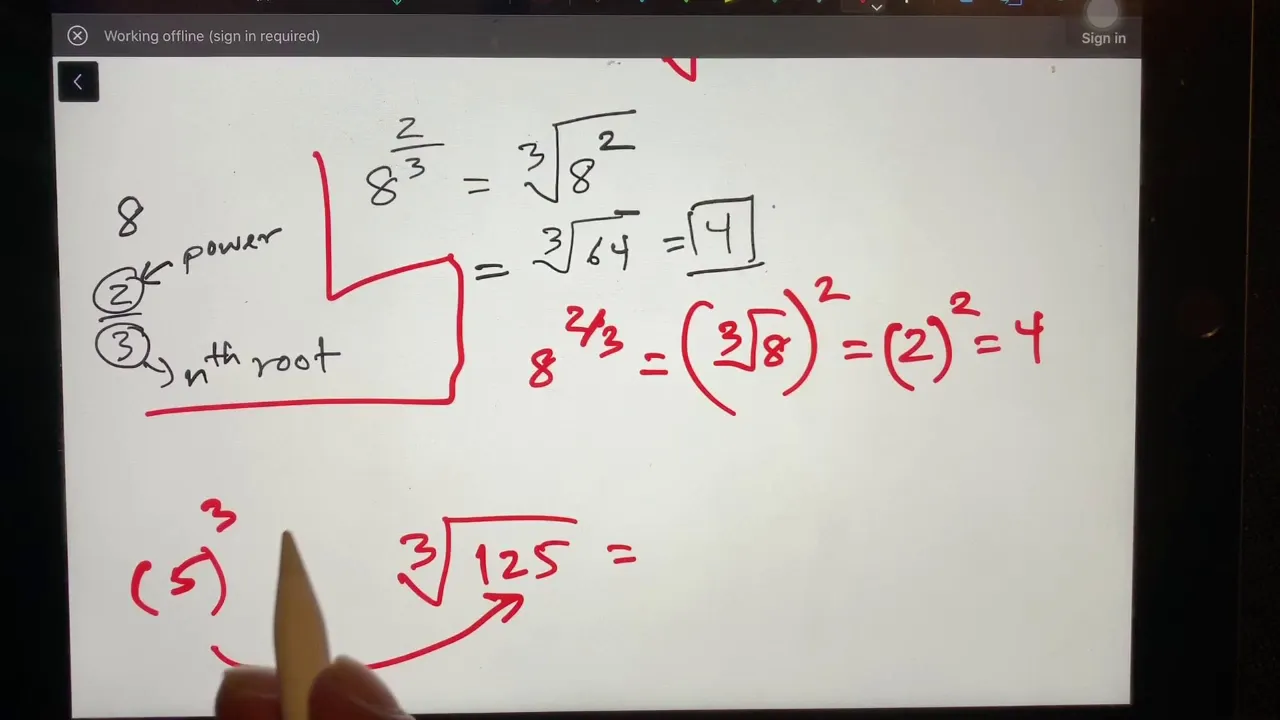 Working offline (sign in required)
Sign in
8^(2/3) = ∛8^2
= ∛64 = 4
8
2 ← power
3 → nth root
8^(2/3) = (∛8)^2 = (2)^2 = 4
(5)^3
∛125 =